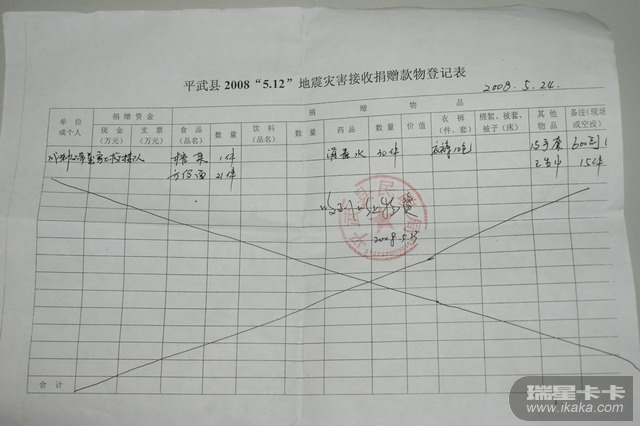 平武县 2008 “5.12” 地震灾害接收捐赠款物登记表
2008.5.24.
单位或个人 捐赠资金 捐赠物品
现金（万元） 支票（万元） 食品（品名） 数量 饮料（品名） 数量 药品 数量 价值 衣裤（件、套） 棉絮、被套、被子（床） 其他物品 备注（现场或空投）
1件 消毒水 30件 衣裤10包 口手套 600副
方便面 21件 卫生巾 15件
以上物资
2008.5.25
合计
瑞星卡卡
www.ikaka.com